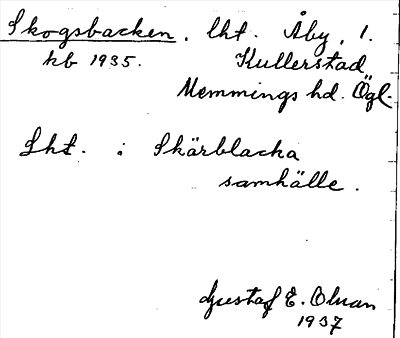 Skogsbacken. lht. Åby, 1.
kb 1935. Kullerstad
Memmings hd. Ögl.
Lht. i Skärblacka
samhälle.
Gustaf E. Olsson
1937